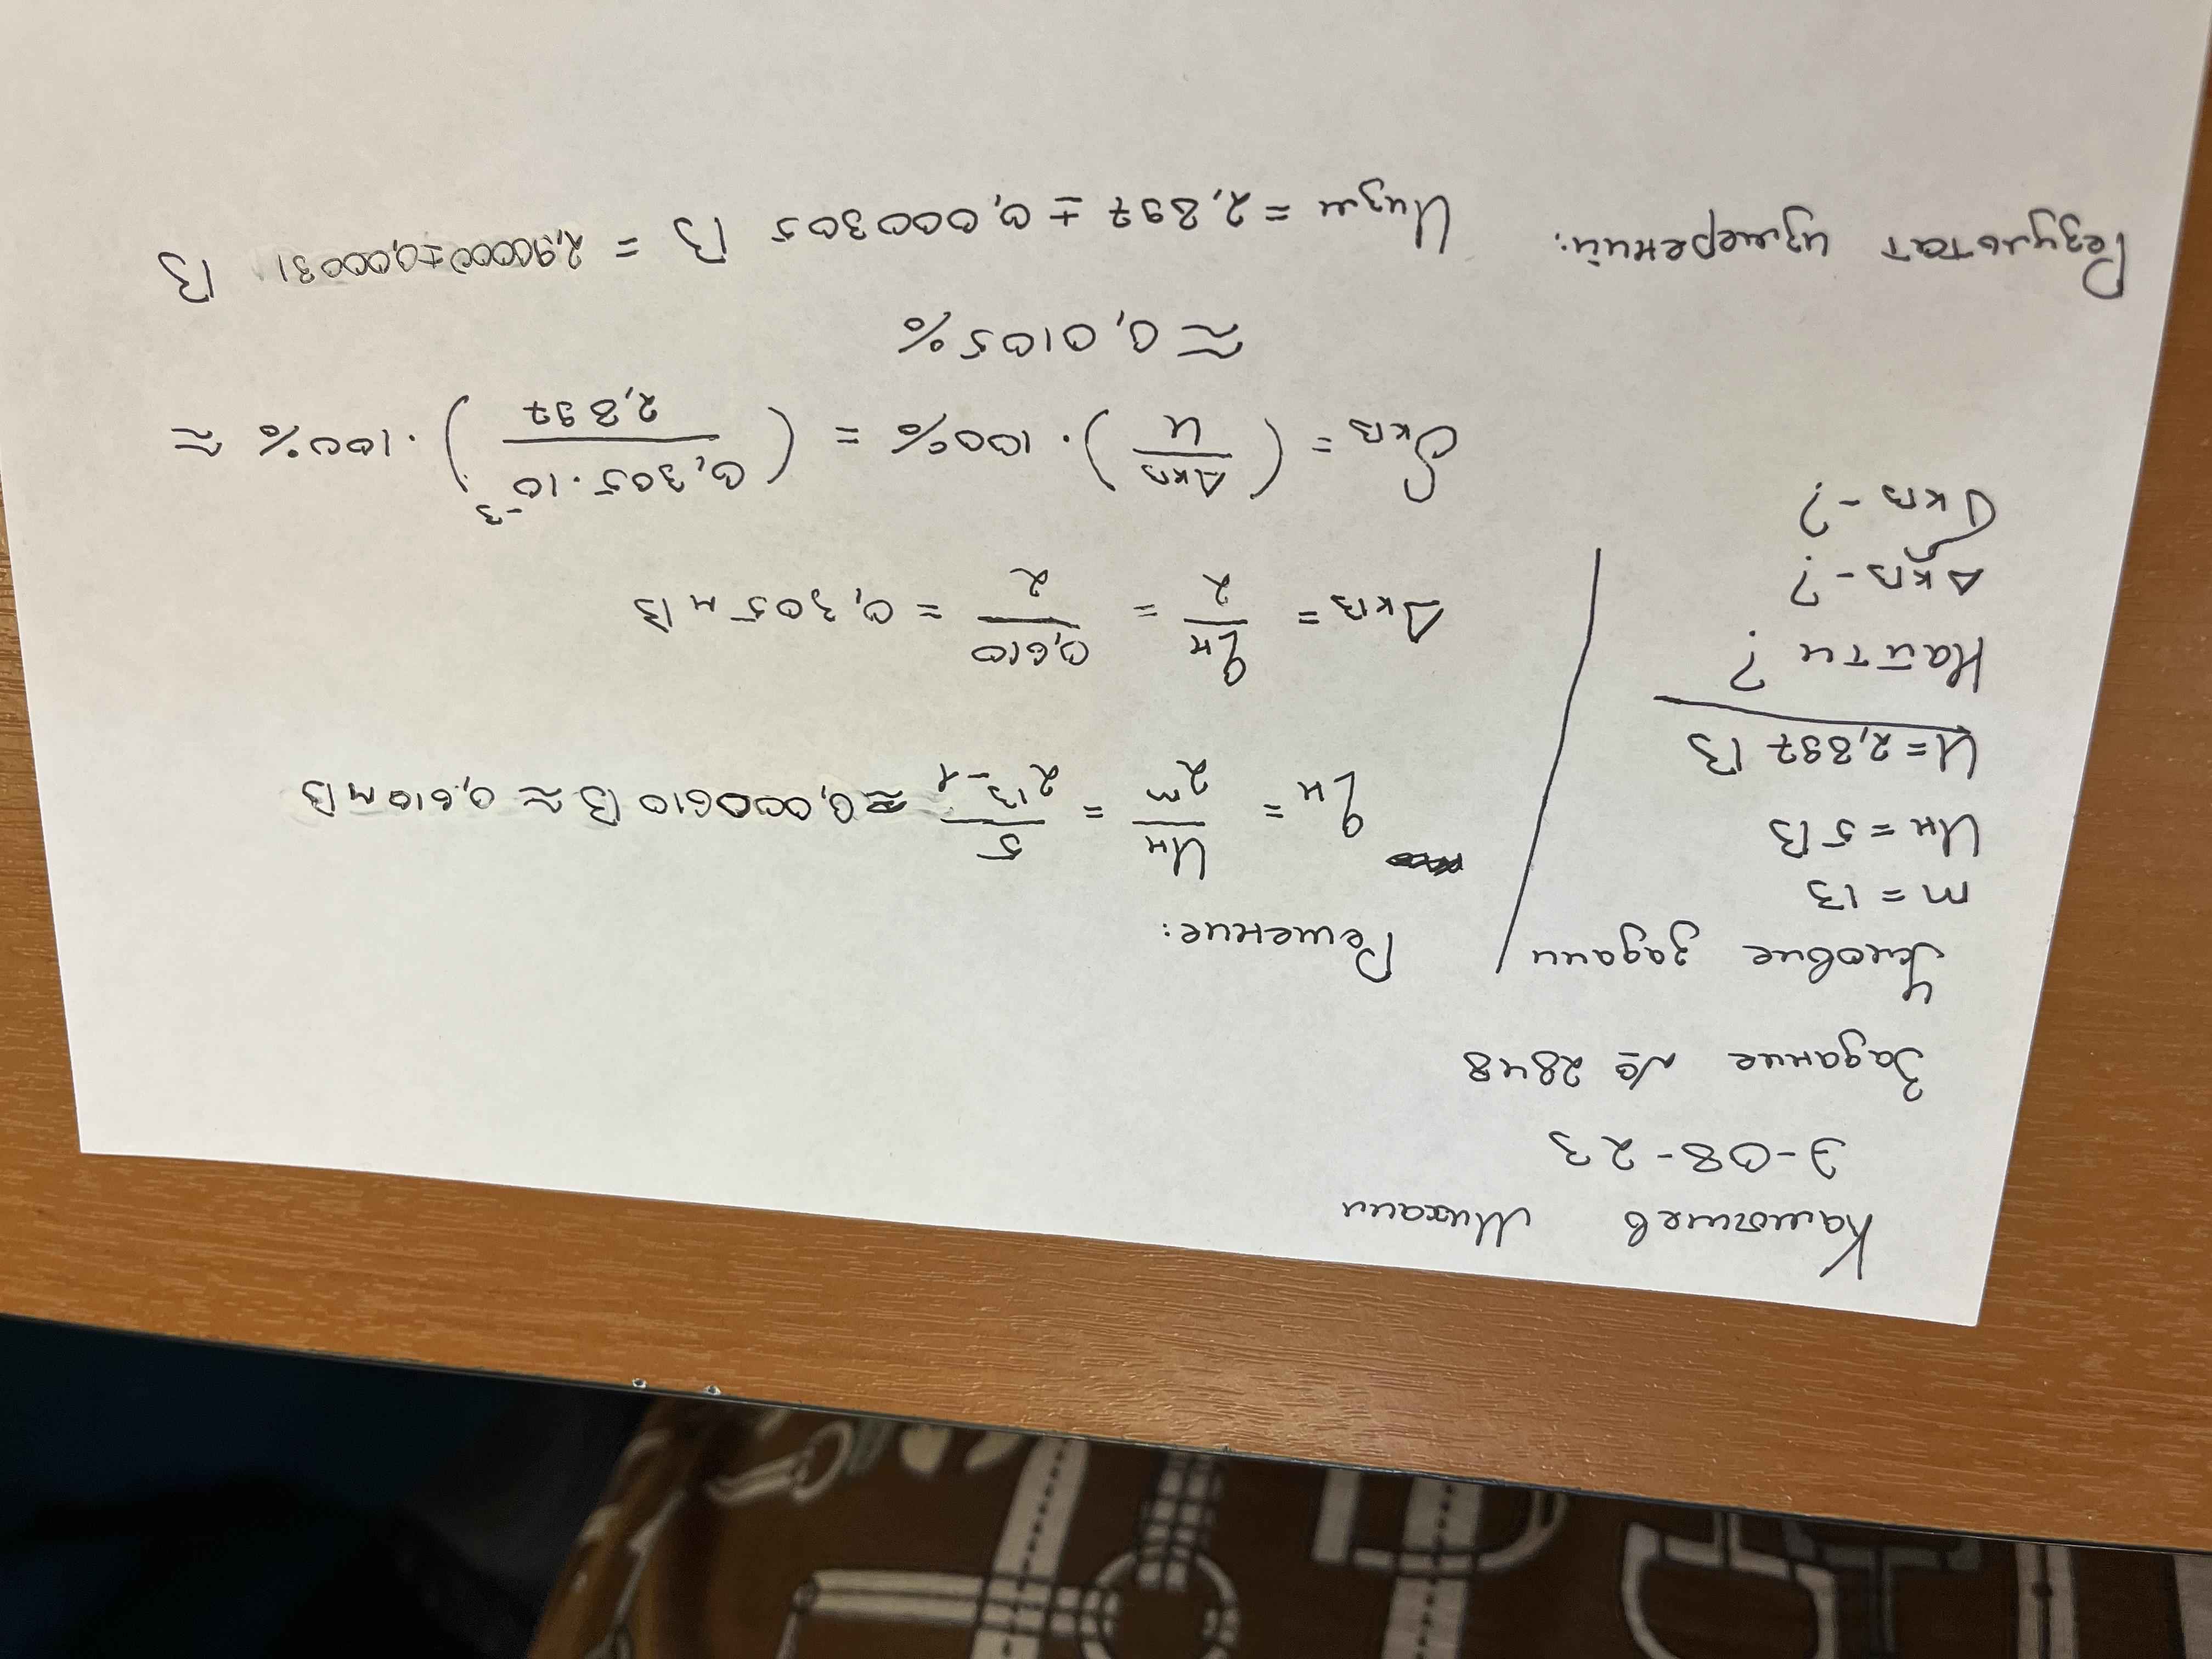 Камышев Михаил
Э-08-23
Задание № 2848
Условие задачи
m = 13
Uн = 5 В
U = 2,897 В
Найти ?
Δкв - ?
δкв - ?
Решение:
qн = Uн / 2^m = 5 / 2^13-1 ≈ 0,000610 В ≈ 0,610 мВ
Δкв = qн / 2 = 0,610 / 2 = 0,305 мВ
δкв = (Δкв / U) · 100% = (0,305·10^-3 / 2,897) · 100% ≈
≈ 0,0105 %
Результат измерений: Uизм = 2,897 ± 0,000305 В = 2,90000±0,00031 В